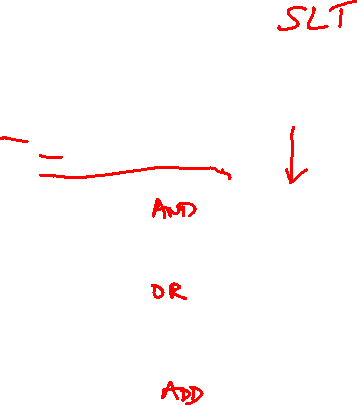 SLT
AND
OR
ADD